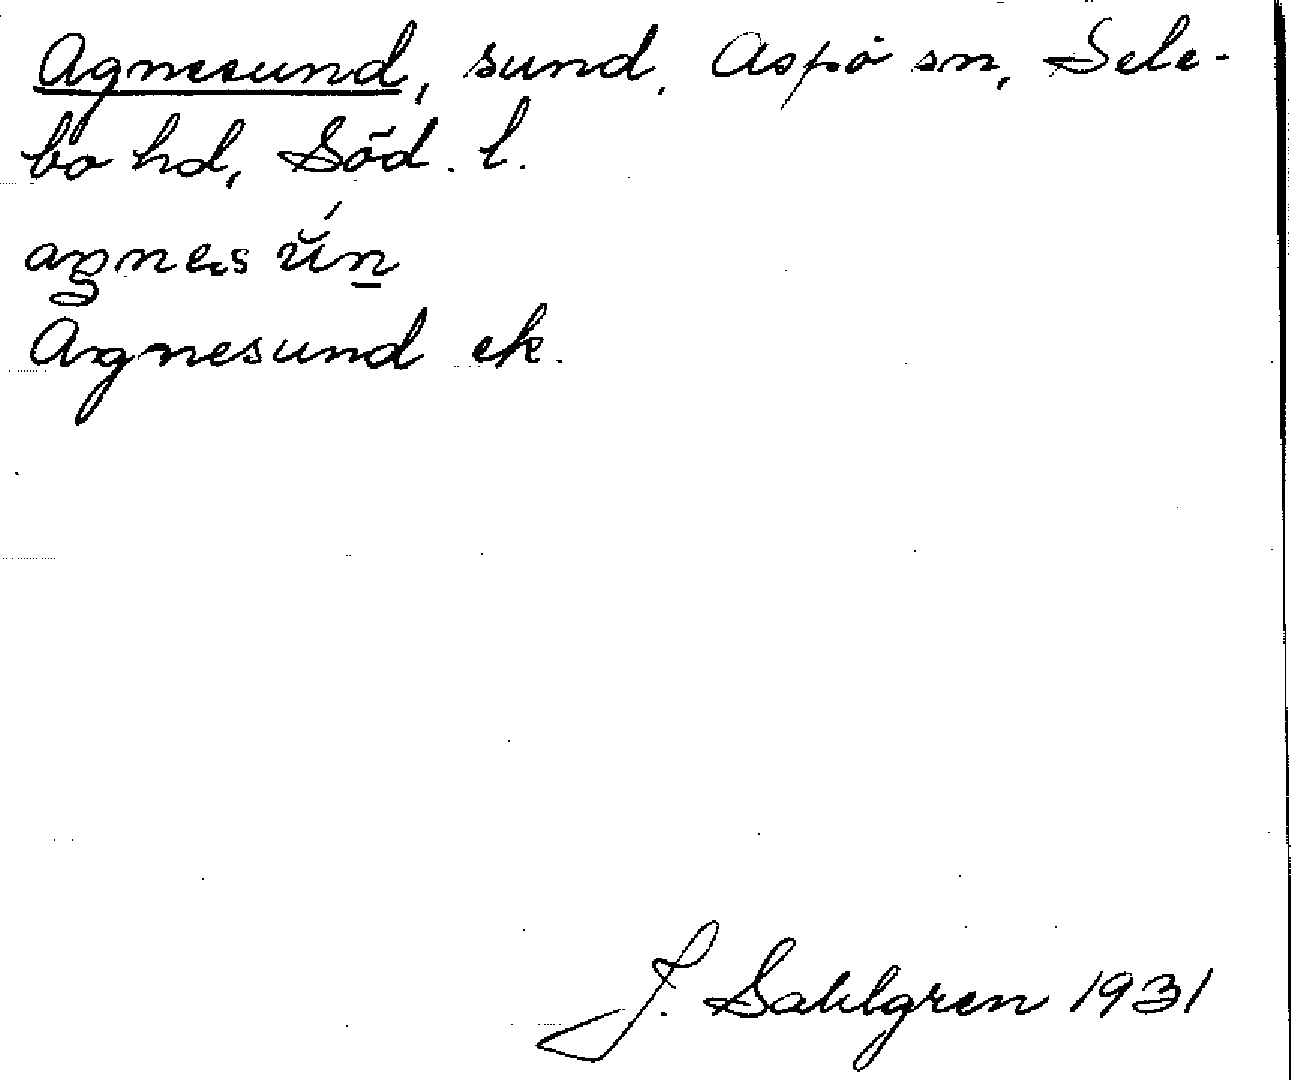 Agnesund, sund, Aspö sn, Sele-
bo hd, Söd. l.
agnes ŭ́n
Agnesund ek.
J. Sahlgren 1931